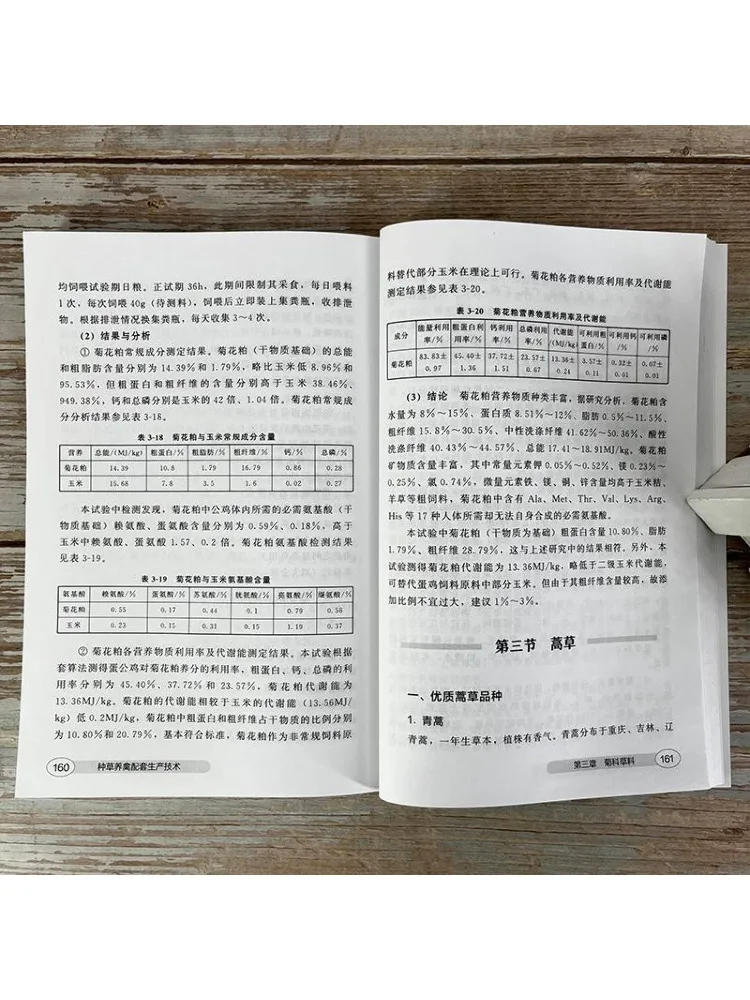 均饲喂试验期日粮。正试期 36h，此期间限制其采食，每日喂料
1次，每次饲喂 40g（待测料），饲喂后立即装上集粪瓶，收排泄
物。根据排泄情况换集粪瓶，每天收集 3～4次。
(2) 结果与分析
① 菊花粕常规成分测定结果。菊花粕（干物质基础）的总能
和粗脂肪含量分别为 14.39%和 1.79%，略比玉米低 8.96%和
95.53%，但粗蛋白和粗纤维的含量分别高于玉米 38.46%、
949.38%，钙和总磷分别是玉米的 42 倍、1.04 倍。菊花粕常规成
分分析结果参见表 3-18。
表 3-18 菊花粕与玉米常规成分含量
营养 总能/(MJ/kg) 粗蛋白/% 粗脂肪/% 粗纤维/% 钙/% 总磷/%
菊花粕 14.39 10.8 1.79 16.79 0.86 0.28
玉米 15.68 7.8 3.5 1.6 0.02 0.27
本试验中检测发现，菊花粕中公鸡体内所需的必需氨基酸（干
物质基础）赖氨酸、蛋氨酸含量分别为 0.59%、0.18%，高于
玉米中赖氨酸、蛋氨酸 1.57、0.2 倍。菊花粕氨基酸检测结果
见表 3-19。
表 3-19 菊花粕与玉米氨基酸含量
氨基酸 赖氨酸/% 蛋氨酸/% 苏氨酸/% 胱氨酸/% 亮氨酸/% 缬氨酸/%
菊花粕 0.55 0.17 0.44 0.1 0.79 0.58
玉米 0.23 0.15 0.31 0.15 1.19 0.37
② 菊花粕各营养物质利用率及代谢能测定结果。本试验根据
套算法测得蛋公鸡对菊花粕养分的利用率，粗蛋白、钙、总磷的利
用率分别为 45.40%、37.72%和 23.57%，菊花粕代谢能为
13.36MJ/kg。菊花粕的代谢能相较于玉米的代谢能（13.56MJ/
kg）低 0.2MJ/kg，菊花粕中粗蛋白和粗纤维占干物质的比例分别
为 10.80%和 20.79%，基本符合标准，菊花粕作为非常规饲料原
160 种草养禽配套生产技术
料替代部分玉米在理论上可行。菊花粕各营养物质利用率及代谢能
测定结果参见表 3-20。
表 3-20 菊花粕营养物质利用率及代谢能
成分 能量利用率/% 粗蛋白利用率/% 钙利用率/% 总磷利用率/% 代谢能/(MJ/kg) 可利用粗蛋白/% 可利用钙/% 可利用磷/%
菊花粕 83.83±0.97 45.40±1.36 37.72±1.51 23.57±0.67 13.36±0.24 3.57±0.11 0.32±0.61 0.67±0.01
(3) 结论 菊花粕营养物质种类丰富，据研究分析，菊花粕含
水量为 8%～15%、蛋白质 8.51%～12%、脂肪 0.5%～11.5%、
粗纤维 15.8%～30.5%、中性洗涤纤维 41.62%～50.36%、酸性
洗涤纤维 40.43%～44.57%、总能 17.41～18.91MJ/kg。菊花粕
矿物质含量丰富，其中常量元素钾 0.05%～0.52%、镁 0.23%～
0.25%、氯 0.74%，微量元素铁、镁、铜、锌含量均高于玉米秸、
羊草等粗饲料，菊花粕中含有 Ala、Met、Thr、Val、Lys、Arg、
His 等 17 种人体所需却无法自身合成的必需氨基酸。
本试验中菊花粕（干物质为基础）粗蛋白含量 10.80%、脂肪
1.79%、粗纤维 28.79%，这与上述研究中的结果相符。另外，本
试验测得菊花粕代谢能为 13.36MJ/kg，略低于二级玉米代谢能，
可替代蛋鸡饲料原料中部分玉米。但由于其粗纤维含量较高，故添
加比例不宜过大，建议 1%～3%。
第三节 蒿草
一、优质蒿草品种
1. 青蒿
青蒿，一年生草本，植株有香气。青蒿分布于重庆、吉林、辽
第三章 菊科草料 161